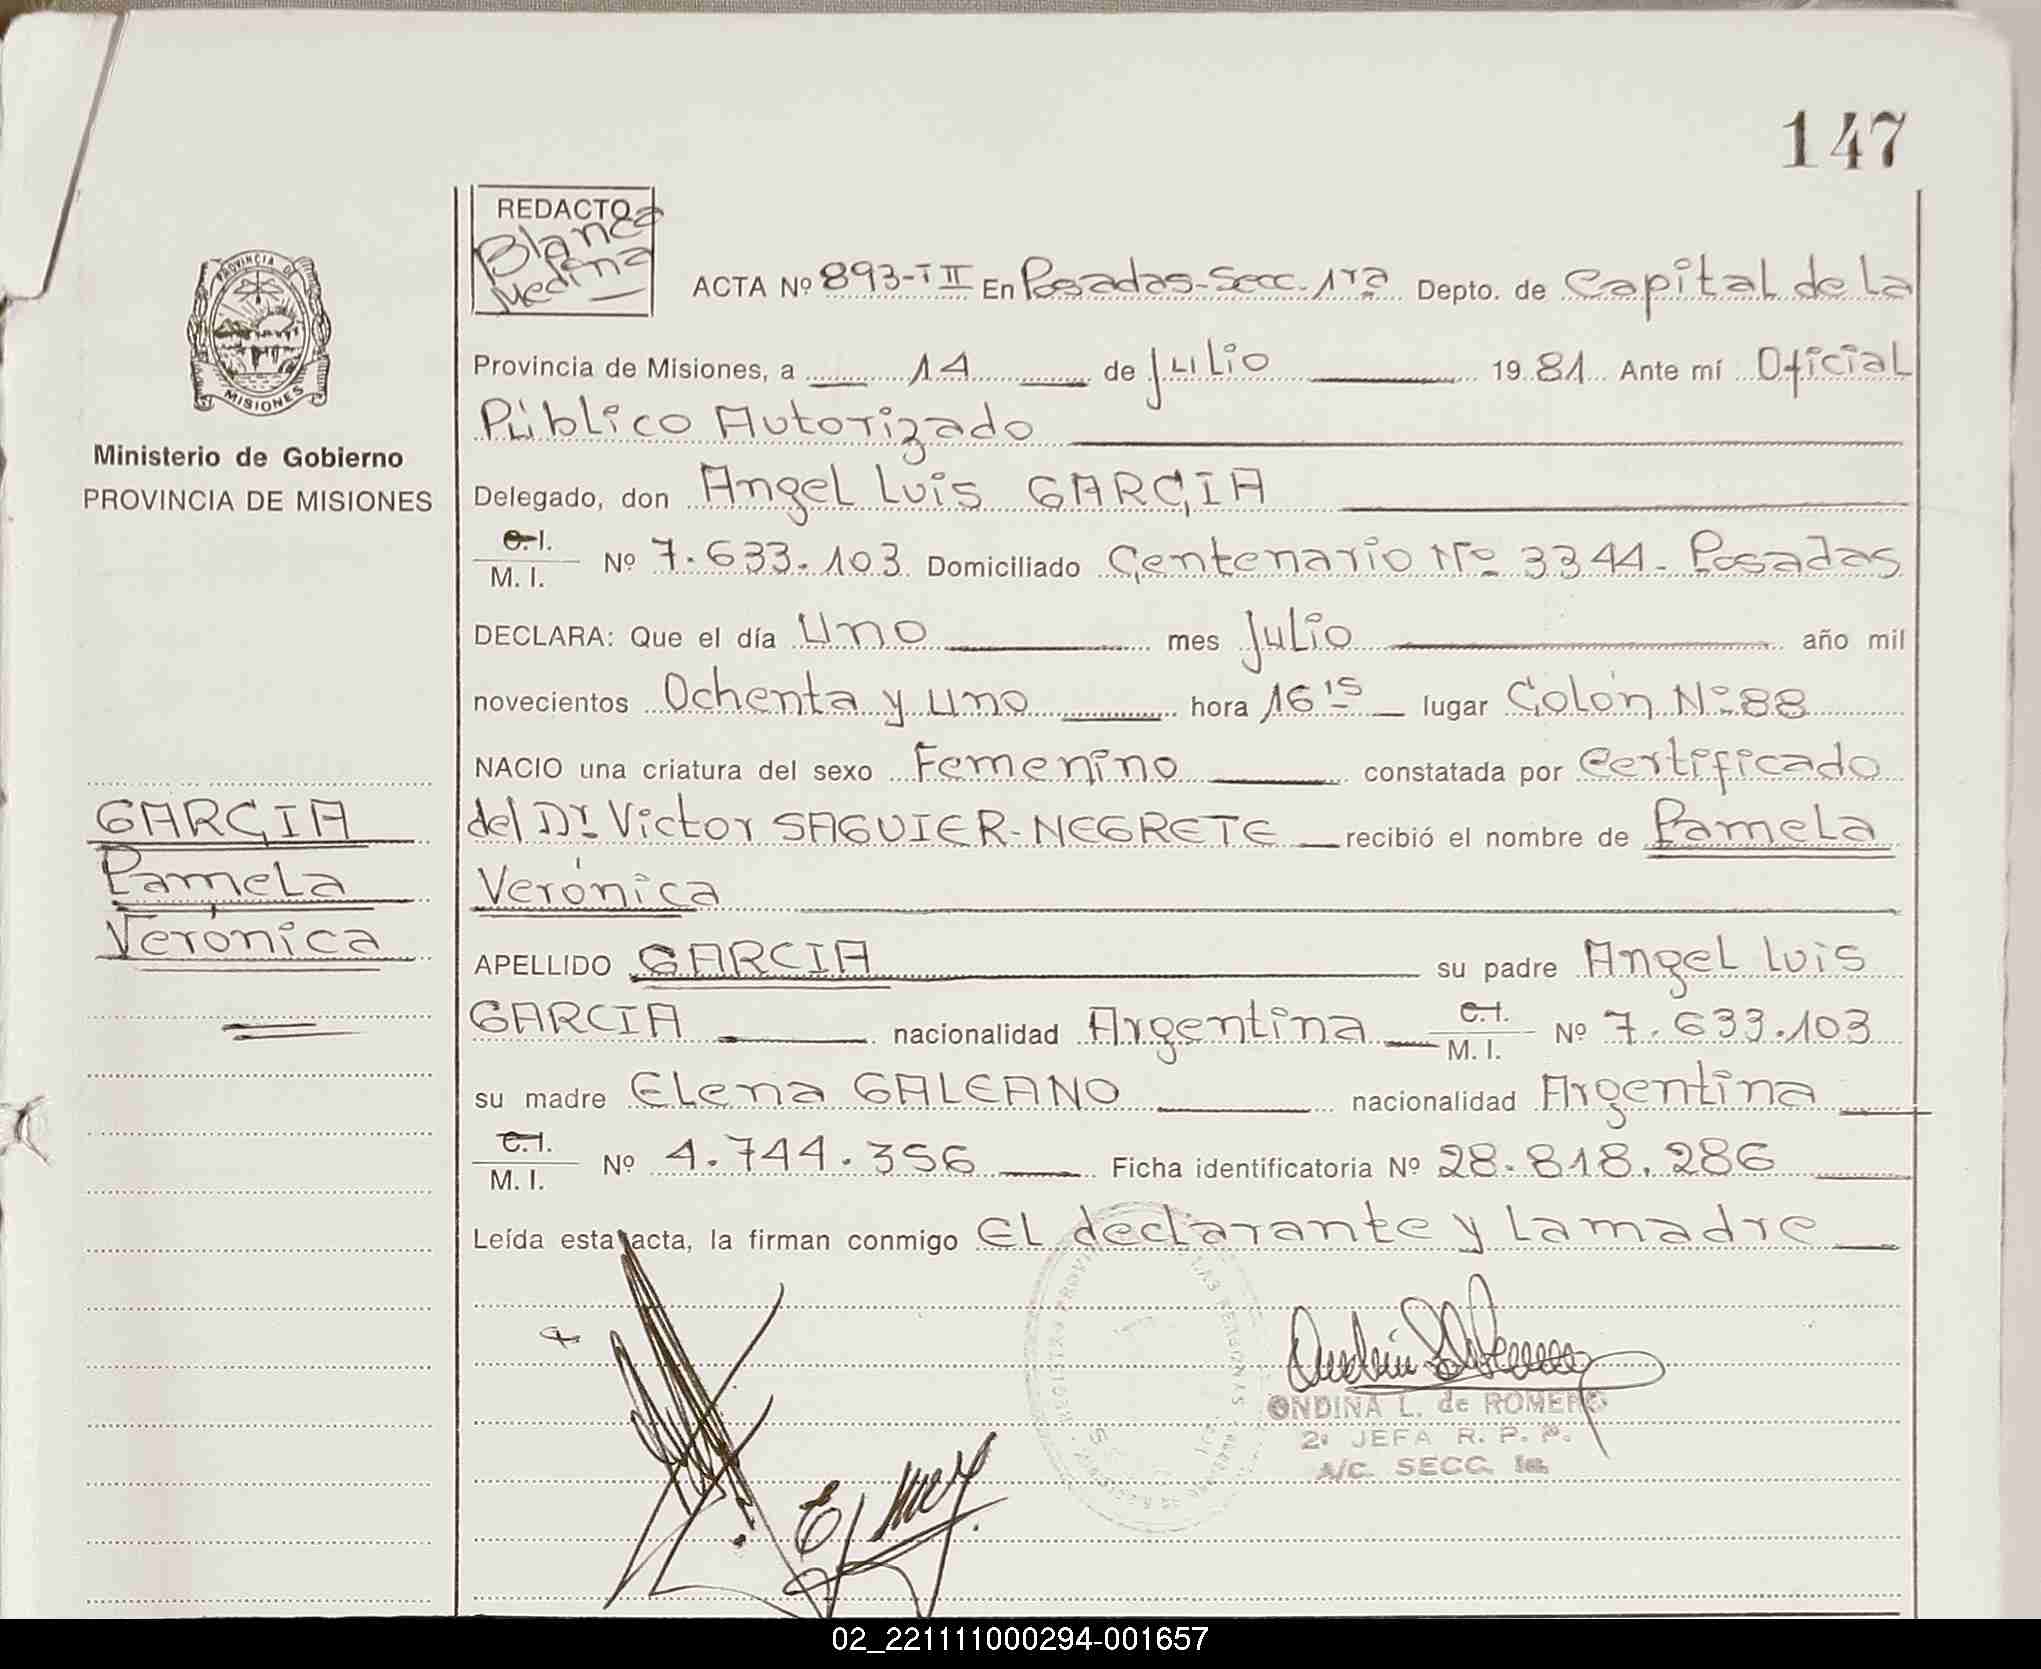 147
REDACTO
Blanca
Medina
ACTA Nº 893-TII En Posadas-Secc. 1ra Depto. de Capital de la
Provincia de Misiones, a 14 de Julio 1981 Ante mí Oficial
Público Autorizado
Delegado, don Angel Luis GARCIA
C. I.
M. I. Nº 7.633.103 Domiciliado Centenario Nº 3344- Posadas
DECLARA: Que el día Uno mes Julio año mil
novecientos Ochenta y uno hora 16 15 lugar Colón Nº 88
NACIO una criatura del sexo Femenino constatada por Certificado
del Dr. Victor SAGUIER-NEGRETE recibió el nombre de Pamela
Verónica
APELLIDO GARCIA su padre Angel Luis
GARCIA nacionalidad Argentina C. I.
M. I. Nº 7.633.103
su madre Elena GALEANO nacionalidad Argentina
C. I.
M. I. Nº 4.744.356 Ficha identificatoria Nº 28.818.286
Leída esta acta, la firman conmigo El declarante y la madre
ONDINA L. de ROMERO
2ª JEFA R. P. P.
A/C. SECC. 1ra.
PROVINCIA DE
MISIONES
Ministerio de Gobierno
PROVINCIA DE MISIONES
GARCIA
Pamela
Verónica
02_221111000294-001657